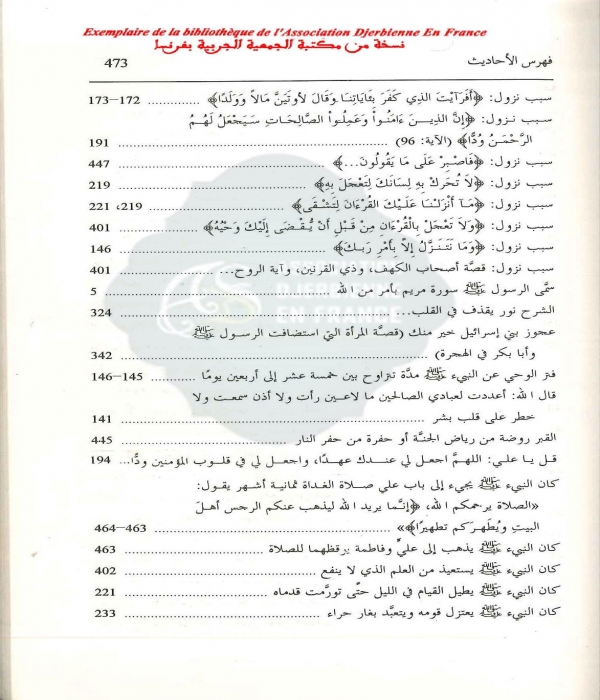 Exemplaire de la bibliothèque de l'Association Djerbienne En France
نسخة من مكتبة الجمعية الجربية بفرنسا
فهرس الأحاديث 473
سبب نزول: ﴿أَفَرَآيْتَ الذِي كَفَرَ بِئَايَاتِنَا وَقَالَ لأُوتَيَنَّ مَالاً وَوَلَدًا﴾ .......... 172–173
سبب نزول: ﴿إِنَّ الذِينَ ءَامَنُواْ وَعَمِلُواْ الصَّالِحَاتِ سَيَجْعَلُ لَهُمُ
الرَّحْمَنُ وُدًّا﴾ (الآية: 96) .......... 191
سبب نزول: ﴿فَاصْبِرْ عَلَى مَا يَقُولُونَ...﴾ .......... 447
سبب نزول: ﴿لاَ تُحَرِّكْ بِهِ لِسَانَكَ لِتَعْجَلَ بِهِ﴾ .......... 219
سبب نزول: ﴿مَآ أَنْزَلْنَا عَلَيْكَ الْقُرْءَانَ لِتَشْقَى﴾ .......... 219، 221
سبب نزول: ﴿وَلاَ تَعْجَلْ بِالْقُرْءَانِ مِن قَبْلِ أَنْ يُّقْضَى إِلَيْكَ وَحْيُهُ﴾ .......... 401
سبب نزول: ﴿وَمَا نَتَنَزَّلُ إِلاَّ بِأَمْرِ رَبِّكَ﴾ .......... 146
سبب نزول: قصَّة أصحاب الكهف، وذي القرنين، وآية الروح... .......... 401
سمَّى الرسول ﷺ سورة مريم بأمر من الله .......... 5
الشرح نور يقذف في القلب... .......... 324
عجوز بني إسرائيل خير منك (قصَّة المرأة التي استضافت الرسول ﷺ
وأبا بكر في الهجرة) .......... 342
فتر الوحي عن النبيء ﷺ مدَّة تتراوح بين خمسة عشر إلى أربعين يومًا .......... 145–146
قال الله: أعددت لعبادي الصالحين ما لا عين رأت ولا أذن سمعت ولا
خطر على قلب بشر .......... 141
القبر روضة من رياض الجنَّة أو حفرة من حفر النار .......... 445
قل يا علي: اللهمَّ اجعل لي عندك عهدًا، واجعل لي في قلوب المؤمنين ودًّا... 194
كان النبيء ﷺ يجيء إلى باب علي صلاة الغداة ثمانية أشهر يقول:
«الصلاة يرحمكم الله، ﴿إِنَّما يريد الله ليذهب عنكم الرجس أهلَ
البيت ويُطهِّركم تطهيرًا﴾» .......... 463–464
كان النبيء ﷺ يذهب إلى عليٍّ وفاطمة يوقظهما للصلاة .......... 463
كان النبيء ﷺ يستعيذ من العلم الذي لا ينفع .......... 402
كان النبيء ﷺ يطيل القيام في الليل حتَّى تورَّمت قدماه .......... 221
كان النبيء ﷺ يعتزل قومه ويتعبَّد بغار حراء .......... 233
ASSOCIATION
DJERBIENNE
EN FRANCE